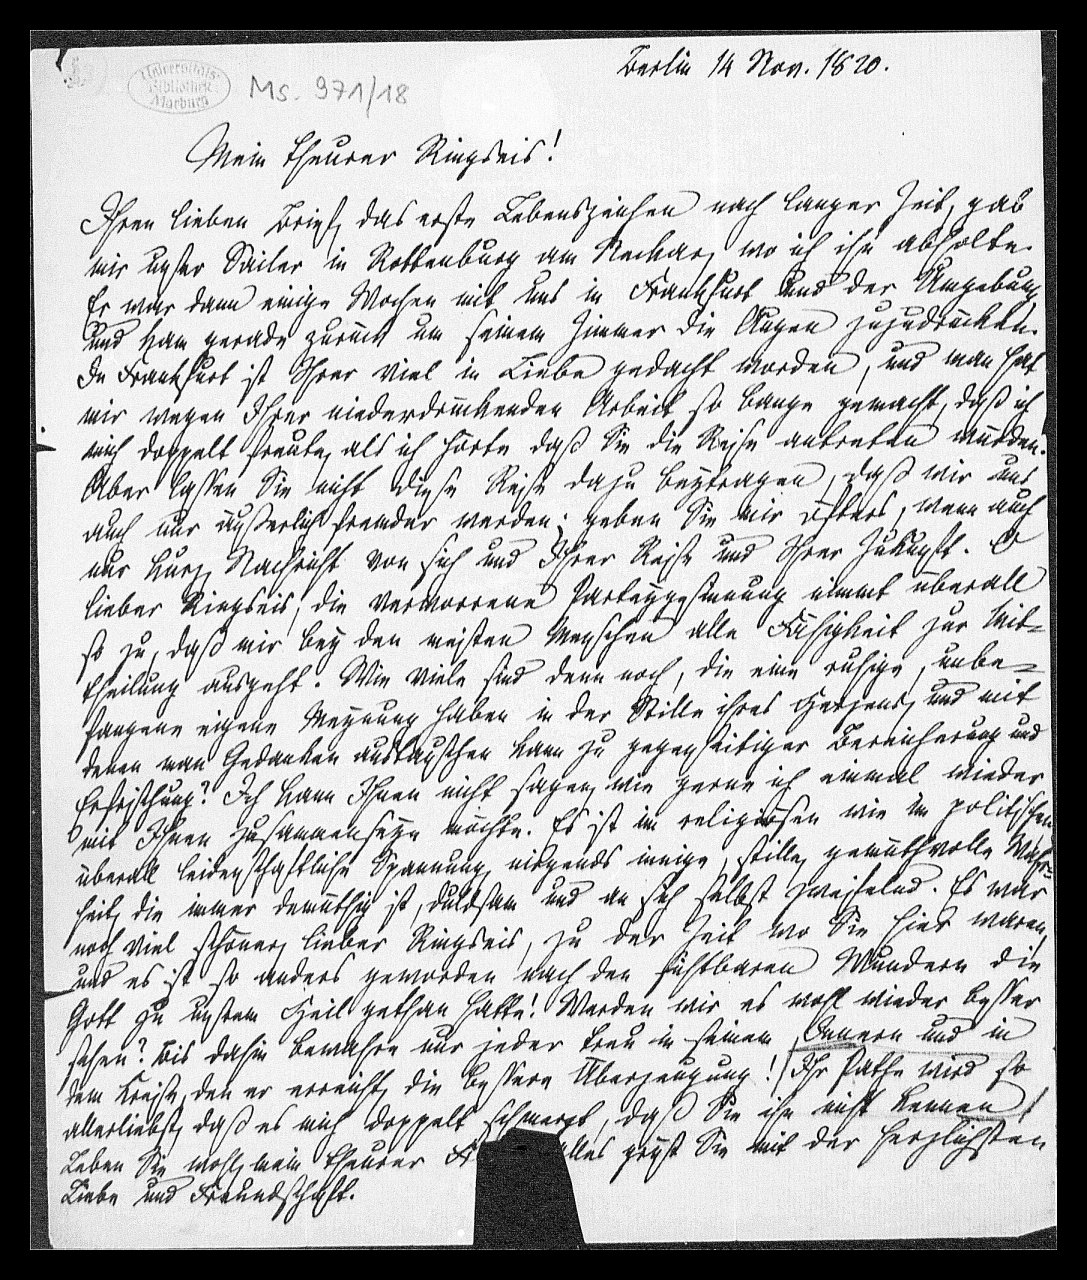 Universitäts-
Bibliothek
Marburg
Ms. 971/18
Berlin 14 Nov. 1820.
Mein theurer Ringseis!
Ihren lieben Brief, das erste Lebenszeichen nach langer Zeit, gab
mir unser Sailer in Rottenburg am Neckar, wo ich ihn abholte.
Er war dann einige Wochen mit uns in Frankfurt und der Umgebung,
und kam gerade zurück um seinem Zimmer die Augen zuzudrücken.
In Frankfurt ist Ihrer viel in Liebe gedacht worden, und man hat
mir wegen Ihrer niederdrückenden Arbeit so bange gemacht, daß ich
mich doppelt freute, als ich hörte daß Sie die Reise antreten würden.
Aber lassen Sie nicht diese Reise dazu beytragen, daß wir uns
auch nur äußerlich fremder werden; geben Sie mir öfters, wenn auch
nur kurz, Nachricht von sich und Ihrer Reise und Ihrer Zukunft. O
lieber Ringseis, die verworrene Partheygesinnung nimmt überall
so zu, daß mir bey den meisten Menschen alle Fähigkeit zur Mit-
theilung ausgeht. Wie viele sind denn noch, die eine ruhige, unbe-
fangene eigene Meynung haben in der Stille ihres Herzens, und mit
denen man Gedanken austauschen kann zu gegenseitiger Bereicherung und
Erfrischung? Ich kann Ihnen nicht sagen, wie gerne ich einmal wieder
mit Ihnen zusammenseyn möchte. Es ist im religiösen wie im politischen
überall leidenschaftliche Spannung, nirgends innige, stille, gemüthvolle Wahr-
heit, die immer demüthig ist, duldsam und an sich selbst zweifelnd. Es war
noch viel schöner, lieber Ringseis, zu der Zeit wo Sie hier waren,
und es ist so anders geworden nach den sichtbaren Wundern die
Gott zu unsrem Heil gethan hatte! Werden wir es wohl wieder besser
sehen? bis dahin bewahre nur jeder treu in seinem Innern und in
dem Kreise, den er erreicht, die bessere Überzeugung! Ihr Pathe wird so
allerliebst, daß es mich doppelt schmerzt, daß Sie ihn nicht kennen!
Leben Sie wohl, mein theurer alles grüßt Sie mit der herzlichsten
Liebe und Freundschaft.